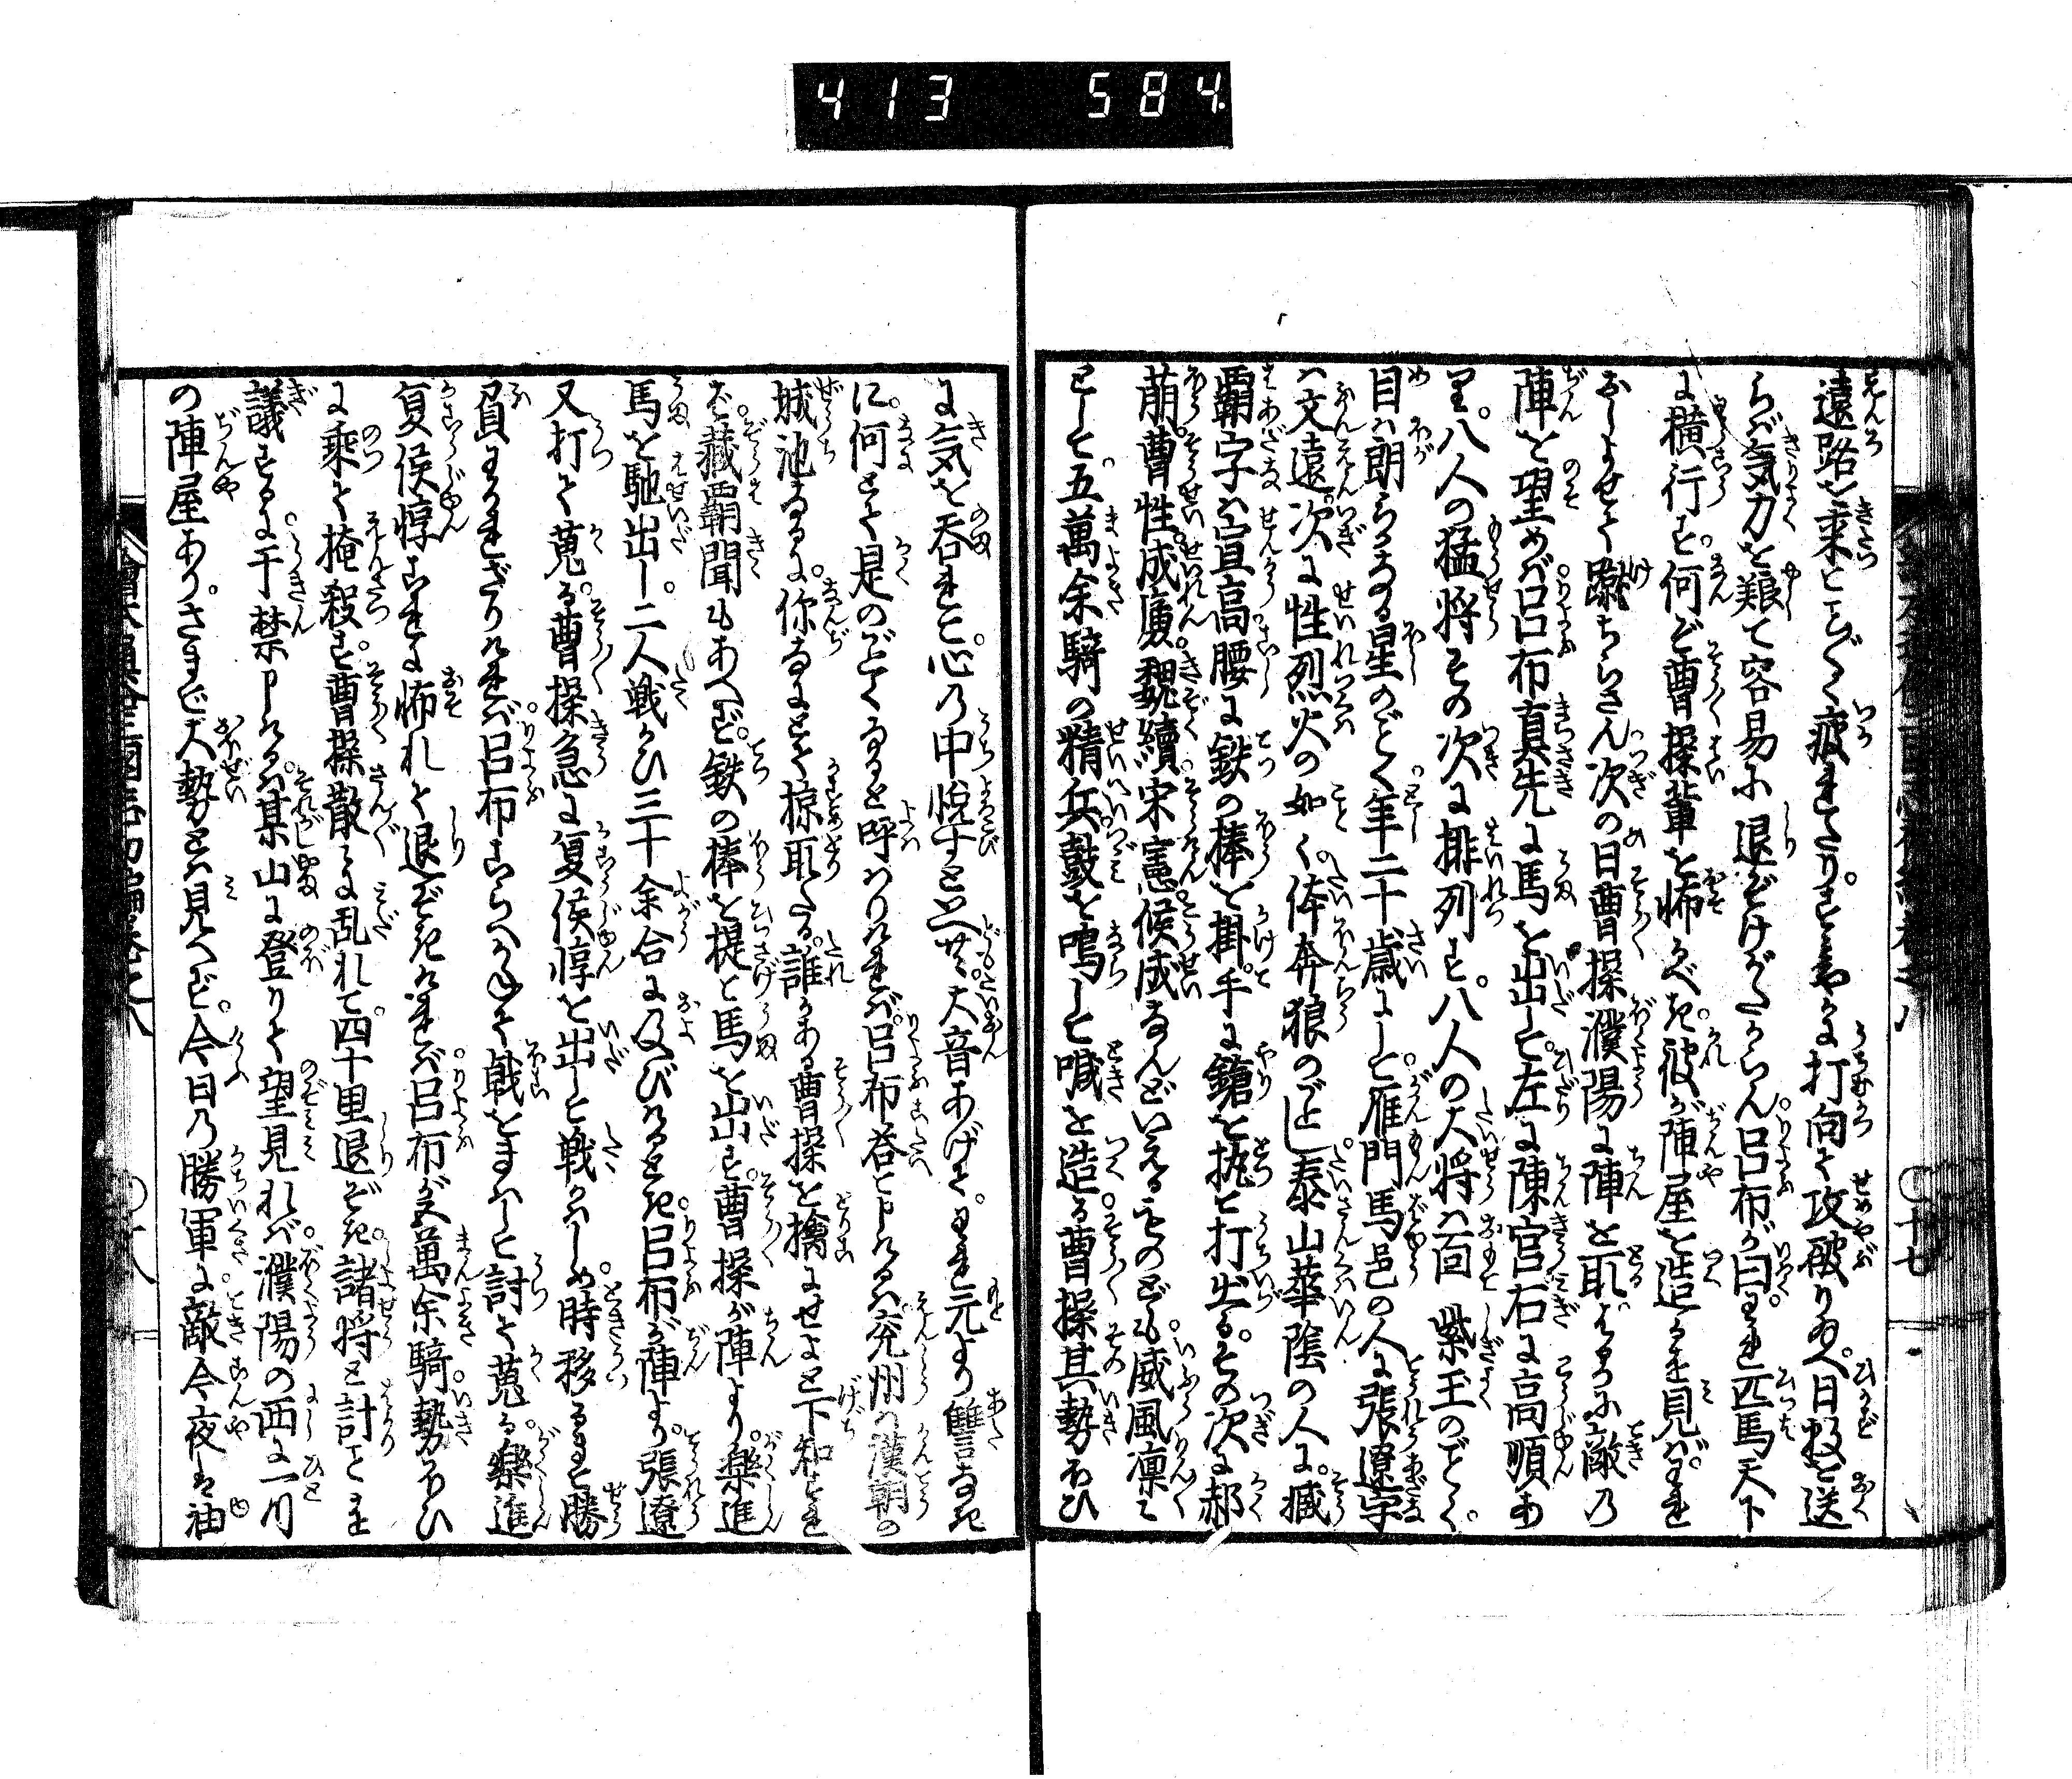 413 584
遠路を来ということく疲れたり。すみやかに打向て攻破り玉へ。日数を送
らば気力を養て容易に退ぞけがたからん。呂布が曰。われ匹馬天下
に横行す。何ぞ曹操輩を怖るべき。彼が陣屋を造るを見ば。われ
おしよせて蹴ちらさん次の日曹操濮陽に陣を取。はるかに敵の
陣を望めば。呂布真先に馬を出して。左に陳宮右に高順あ
り。八人の猛将その次に排列す。八人の大将は面紫玉のごとく。
目は朗らかなる星のごとく年二十歳にして。雁門馬邑の人に張遼字
は文遠。次に性烈火の如く。体奔狼のごとし泰山華陰の人に。臧
覇字は宣高。腰に鉄の棒を掛。手に鎗を執て打出る。その次に郝
萌曹性。成廉。魏續。宋憲。候成なんどいえるものども。威風凛々
として。五萬余騎の精兵。鼓を鳴して喊を造る。曹操其勢おひ
に気を呑れて。心の中悦すといへども。大音あげて。われ元より讐なき
に。何とて是のごとくなると呼はりければ。呂布答へ申けるは。兗州は漢朝の
城池なるに。你なにとて掠取たる。誰かある曹操を擒にせよと下知すれ
ば。藏覇聞もあへず。鉄の棒を提て馬を出す。曹操が陣より。楽進
馬を馳出し。二人戦かひ三十余合に及びけるとき。呂布が陣より。張遼
又打て蒐る。曹操急に夏侯惇を出して戦かはしめ。時移るまで勝
負わかれざりければ。呂布こらへかねて戟をまはして討て蒐る。楽進
夏侯惇これに怖れて退ぞきければ。呂布が五萬余騎。勢おひ
に乗て掩殺す。曹操散々に乱れて。四十里退ぞき。諸将と計ごとを
議するに。于禁申けるは。某山に登りて望見れば。濮陽の西に一つ
の陣屋あり。さまで大勢とは見へず。今日の勝軍に。敵今夜は油
十七